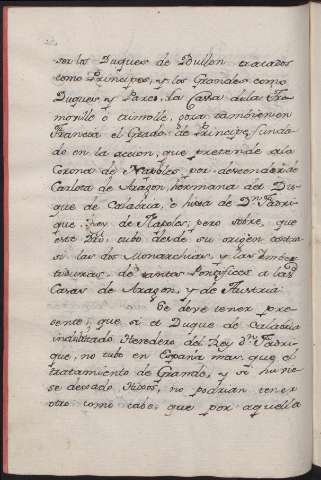 ser los Duques de Bullon tratados
como Principes, y los Grandes como
Duques, y Pares. La Cassa de la Tre
morille o trimolle, goza tambien en
Francia el Grado de Principe, funda
do en la accion, que pretende a la
Corona de Napoles por descender de
Carlota de Aragon hermana del Du
que de Calabria, e hija de Dn. Fadri
que Rey de Napoles; pero sobre, que
este tubo desde su origen contra
si las dos Monarchias, y las Inves
tiduras de tantos Pontifices a las
Casas de Aragon, y de Austria.
Se deve tener pre
sente, que si el Duque de Calabria
indubitado Heredero del Rey Dn. Fadri
que, no tubo en España mas, que el
tratamiento de Grande, y si huvie
se dexado Hijos, no podrian tener
otro como cabe que por aquella